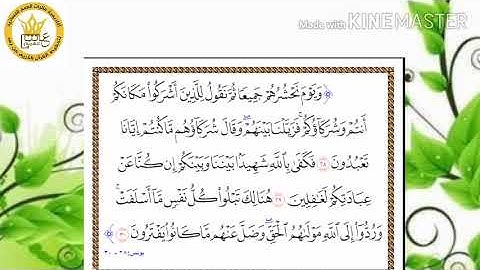 Made with KINEMASTER
﴿ وَيَوْمَ نَحْشُرُهُمْ جَمِيعًا ثُمَّ نَقُولُ لِلَّذِينَ أَشْرَكُوا۟ مَكَانَكُمْ
أَنتُمْ وَشُرَكَآؤُكُمْ ۚ فَزَيَّلْنَا بَيْنَهُمْ ۖ وَقَالَ شُرَكَآؤُهُم مَّا كُنتُمْ إِيَّانَا
تَعْبُدُونَ ٢٨ فَكَفَىٰ بِٱللَّهِ شَهِيدًۢا بَيْنَنَا وَبَيْنَكُمْ إِن كُنَّا عَنْ
عِبَادَتِكُمْ لَغَٰفِلِينَ ٢٩ هُنَالِكَ تَبْلُوا۟ كُلُّ نَفْسٍ مَّآ أَسْلَفَتْ ۚ
وَرُدُّوٓا۟ إِلَى ٱللَّهِ مَوْلَىٰهُمُ ٱلْحَقِّ ۖ وَضَلَّ عَنْهُم مَّا كَانُوا۟ يَفْتَرُونَ ٣٠ ﴾
يونس: ٢٨ - ٣٠